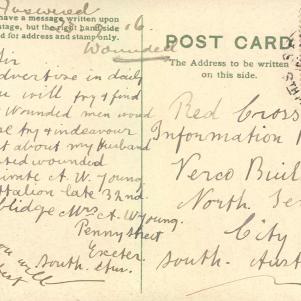 Answered
have a message written upon
antage, but the right hand side
d for address and stamp only.
16
Wounded
POST CARD
The Address to be written
on this side.
Sir
advertise in daily
you will try & find
Wounded men would
try & endeavour
about my husband
wounded
Private A. W. Young
Battalion late 32nd
oblidge Mrs A. W. Young.
Penny Street
Exeter.
South. Aus.
you will
Red Cross
Information
Verco Buil
North Ter
City
South. Aust